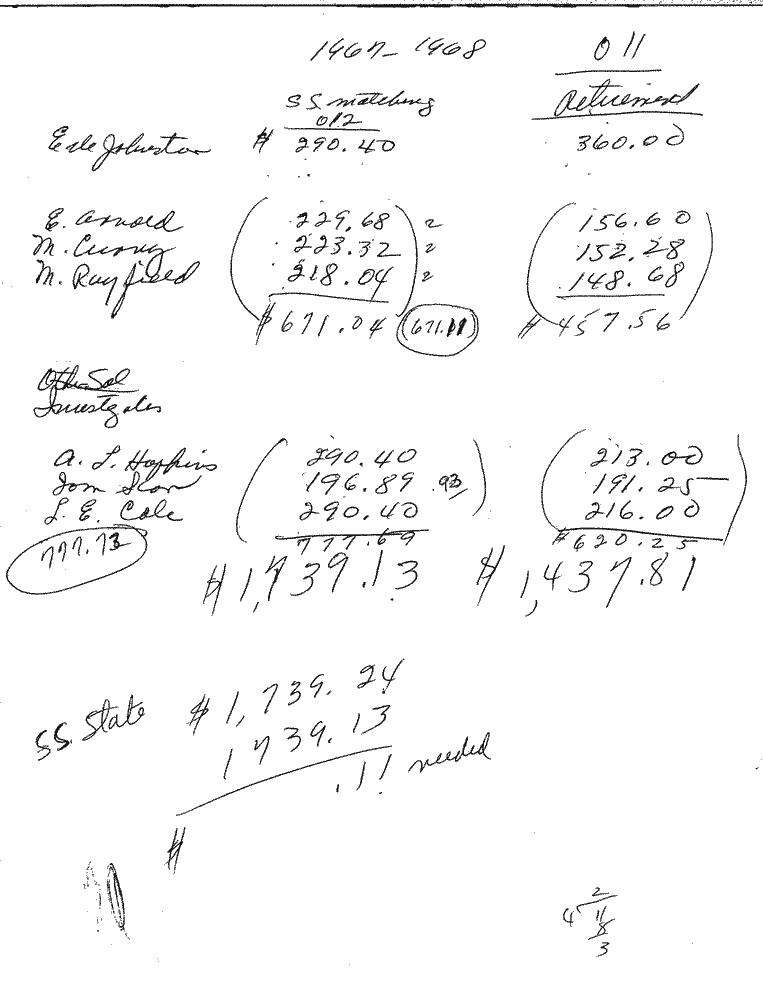 1967-1968 011
S.S. matching Retirement
012
Erle Johnston $ 290.40 360.00
E. Arnold 229.68 2 156.60
M. Curry 223.32 2 152.28
M. Rayfield 218.04 2 148.68
$671.04 (671.11) $457.56
Other Sal
Investgates
A. L. Hopkins 290.40 213.00
Tom Scar 196.89 .93 191.25
L. E. Cole 290.40 216.00
777.73 777.69 $620.25
$1,739.13 $1,437.81
S.S. State $1,739.24
1739.13
.11 needed
$
2
4 11
8
3